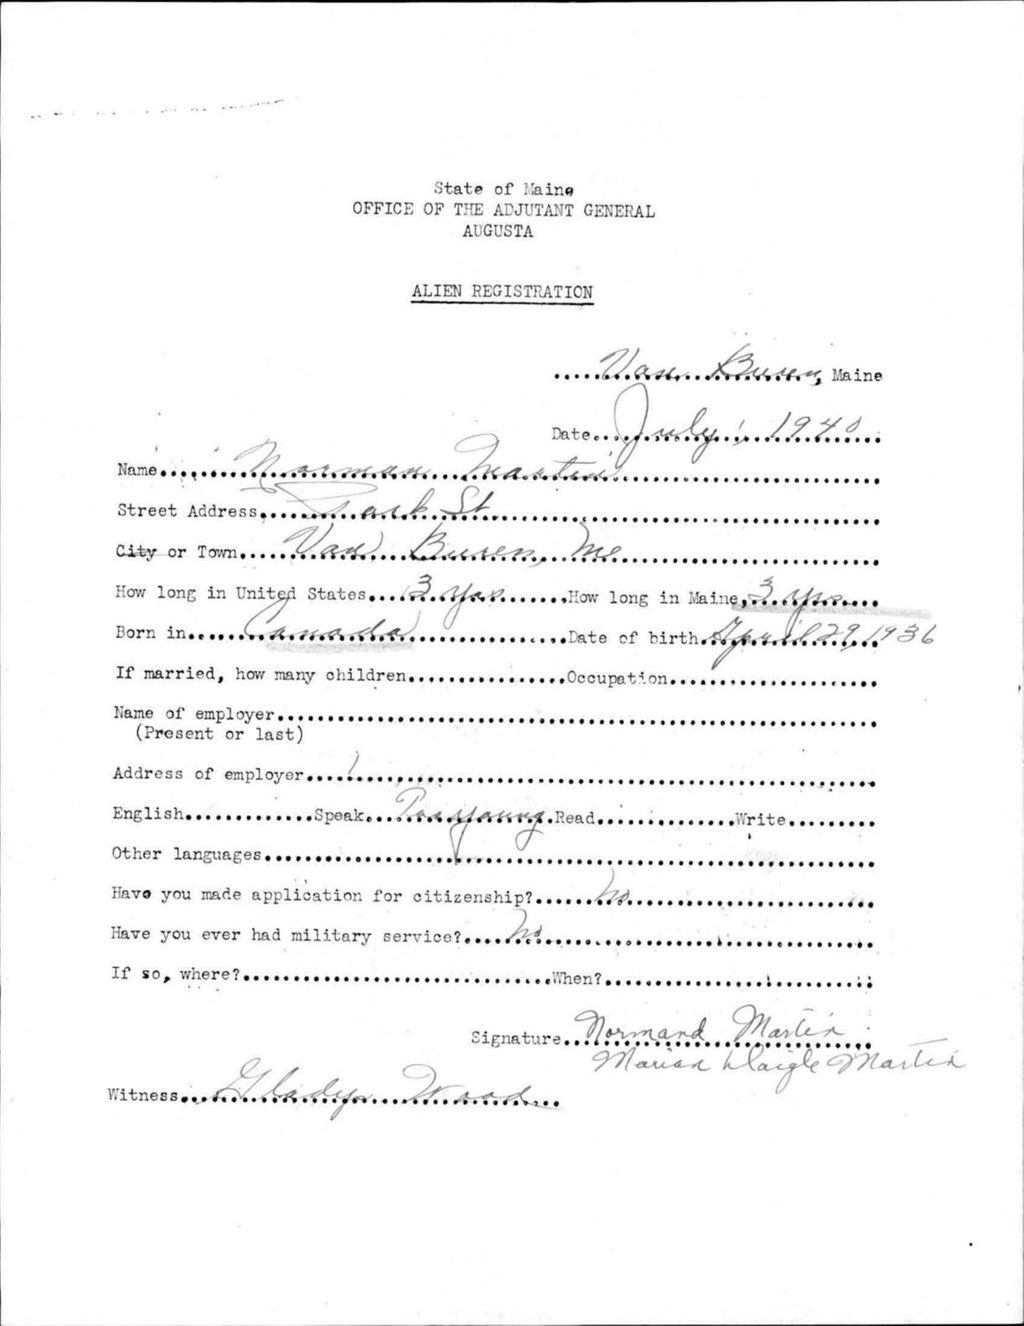 State of Maine
OFFICE OF THE ADJUTANT GENERAL
AUGUSTA
ALIEN REGISTRATION
Van Buren, Maine
Date July 1, 1940
Name Norman Martin
Street Address Park St
City or Town Van Buren, Me
How long in United States 3 yrs How long in Maine 3 yrs
Born in Canada Date of birth April 29, 1936
If married, how many children Occupation
Name of employer
(Present or last)
Address of employer
English Speak Too young Read Write
Other languages
Have you made application for citizenship? No
Have you ever had military service? No
If so, where? When?
Signature Normand Martin
Marian Daigle Martin
Witness Gladys Wood